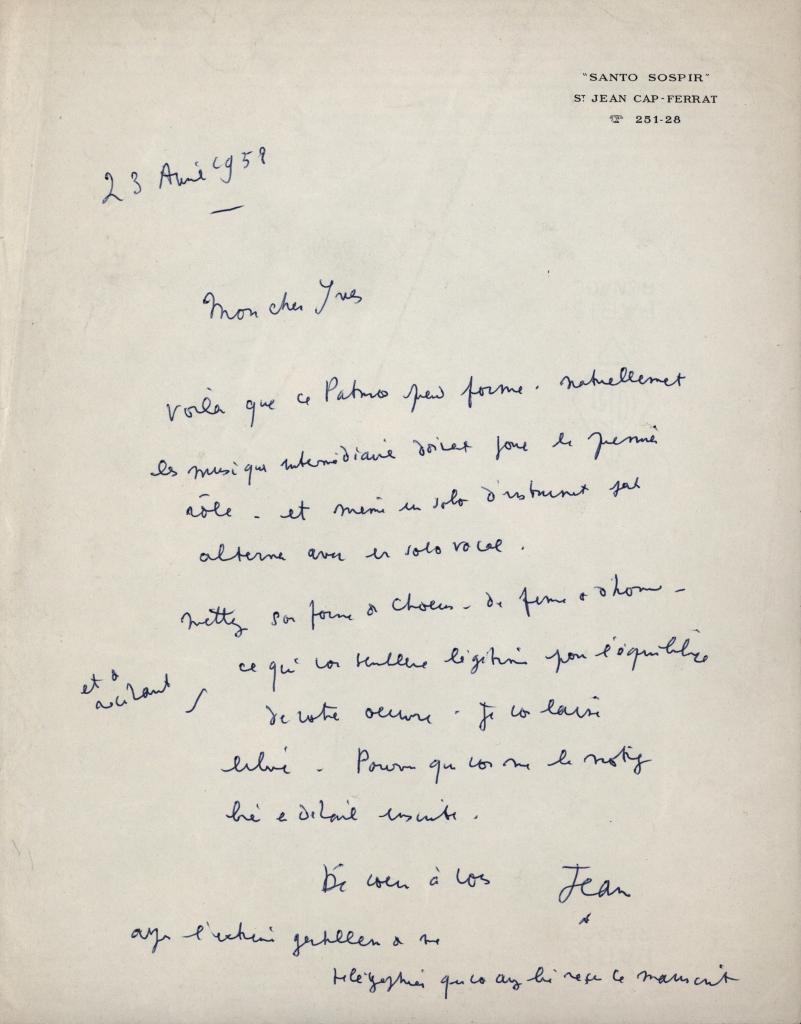 "SANTO SOSPIR"
ST JEAN CAP-FERRAT
☎ 251-28
23 Avril 1958
Mon cher Yves
Voilà que ce Patmos prend forme. naturellement
les musiques intermédiaires doivent jouer le premier
rôle - et même un solo d'instrument
alterner avec un solo vocal.
Mettez sous forme de Choeurs - de femmes et d'hommes -
ce qui vous semblera légitime pour l'équilibre
et de
récitant
de votre oeuvre. Je vous laisse
libre. Pourvu que vous me le notiez
bien en détail ensuite.
De coeur à vous Jean
*
ayez l'extrême gentillesse de me
télégraphier que vous avez bien reçu le manuscrit